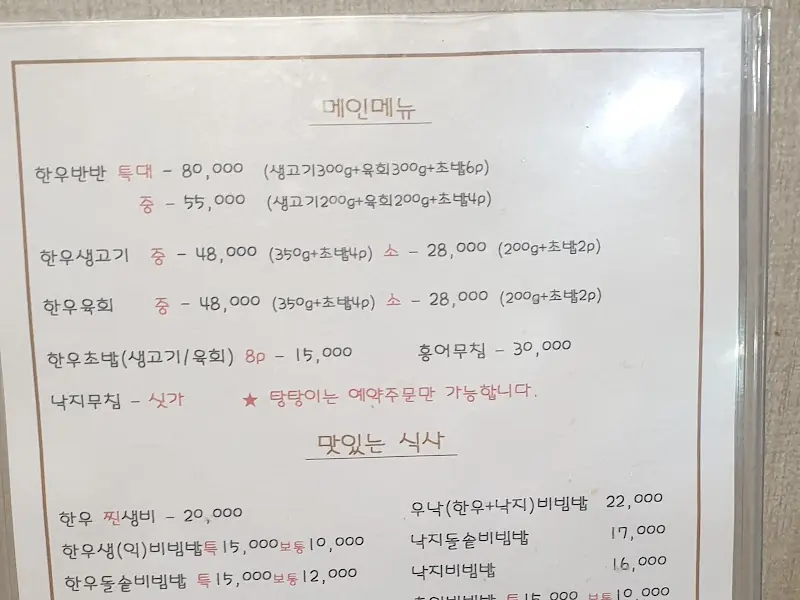 메인메뉴
한우반반 특대 - 80,000 (생고기300g+육회300g+초밥6p)
중 - 55,000 (생고기200g+육회200g+초밥4p)
한우생고기 중 - 48,000 (350g+초밥4p) 소 - 28,000 (200g+초밥2p)
한우육회 중 - 48,000 (350g+초밥4p) 소 - 28,000 (200g+초밥2p)
한우초밥(생고기/육회) 8p - 15,000 홍어무침 - 30,000
낙지무침 - 싯가 ★ 탕탕이는 예약주문만 가능합니다.
맛있는 식사
한우 찐생비 - 20,000 우낙(한우+낙지)비빔밥 22,000
한우생(익)비빔밥특15,000보통10,000 낙지돌솥비빔밥 17,000
한우돌솥비빔밥 특15,000보통12,000 낙지비빔밥 16,000
특15,000 보통10,000